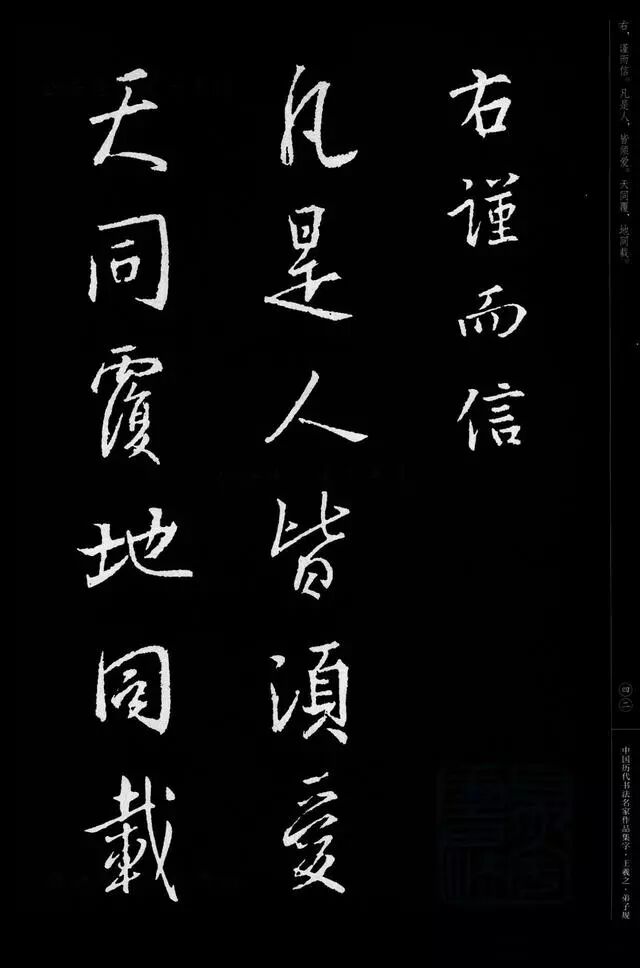 右謹而信
凡是人皆須愛
天同覆地同載
右，谨而信。凡是人，皆须爱。天同覆，地同载。
四二
中国历代书法名家作品集字·王羲之·弟子规